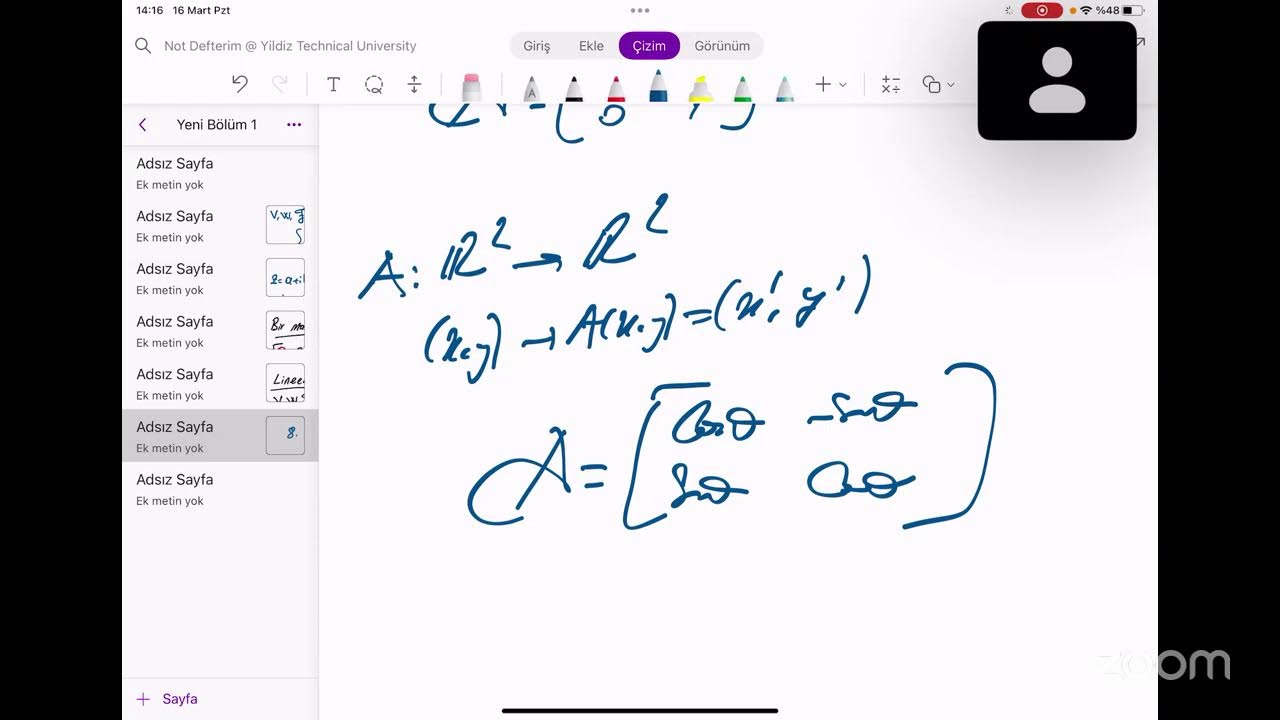 14:16 16 Mart Pzt
%48
Not Defterim @ Yildiz Technical University
Giriş Ekle Çizim Görünüm
T A
Yeni Bölüm 1
Adsız Sayfa
Ek metin yok
Adsız Sayfa
Ek metin yok
V, W,
Adsız Sayfa
Ek metin yok
Adsız Sayfa
Ek metin yok
Bir
Adsız Sayfa
Ek metin yok
Linee
Adsız Sayfa
Ek metin yok
8.
Adsız Sayfa
Ek metin yok
Sayfa
A: ℝ² → ℝ²
(x,y) → A(x,y) = (x', y')
A = [ Cosθ -Sinθ
Sinθ Cosθ ]
zoom